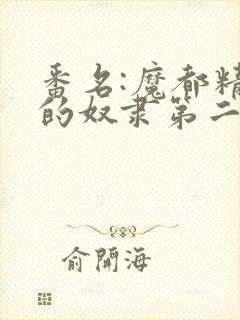 番名:魔都精
的奴隶第二
俞開海